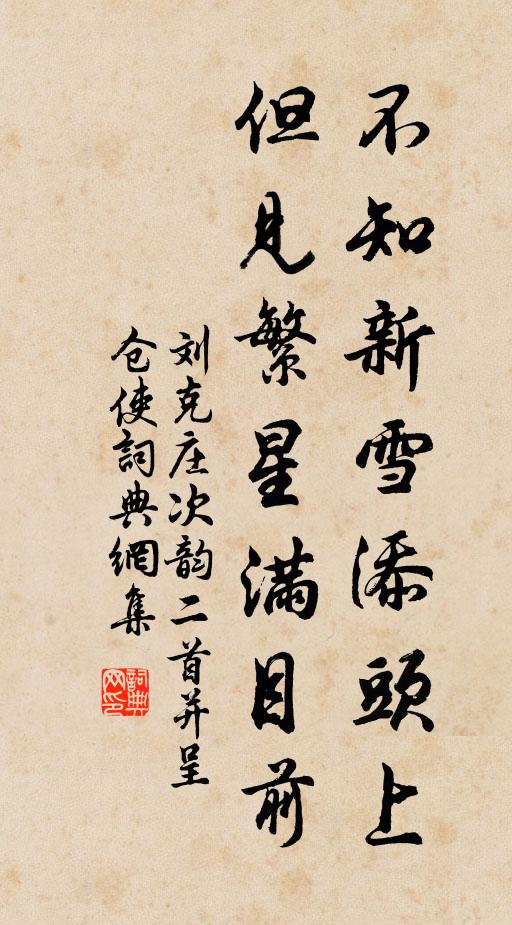 不知新雪添頭上
但见繁星满目前
刘克庄次韵二首并呈
仓使詞典網集
詞典网印